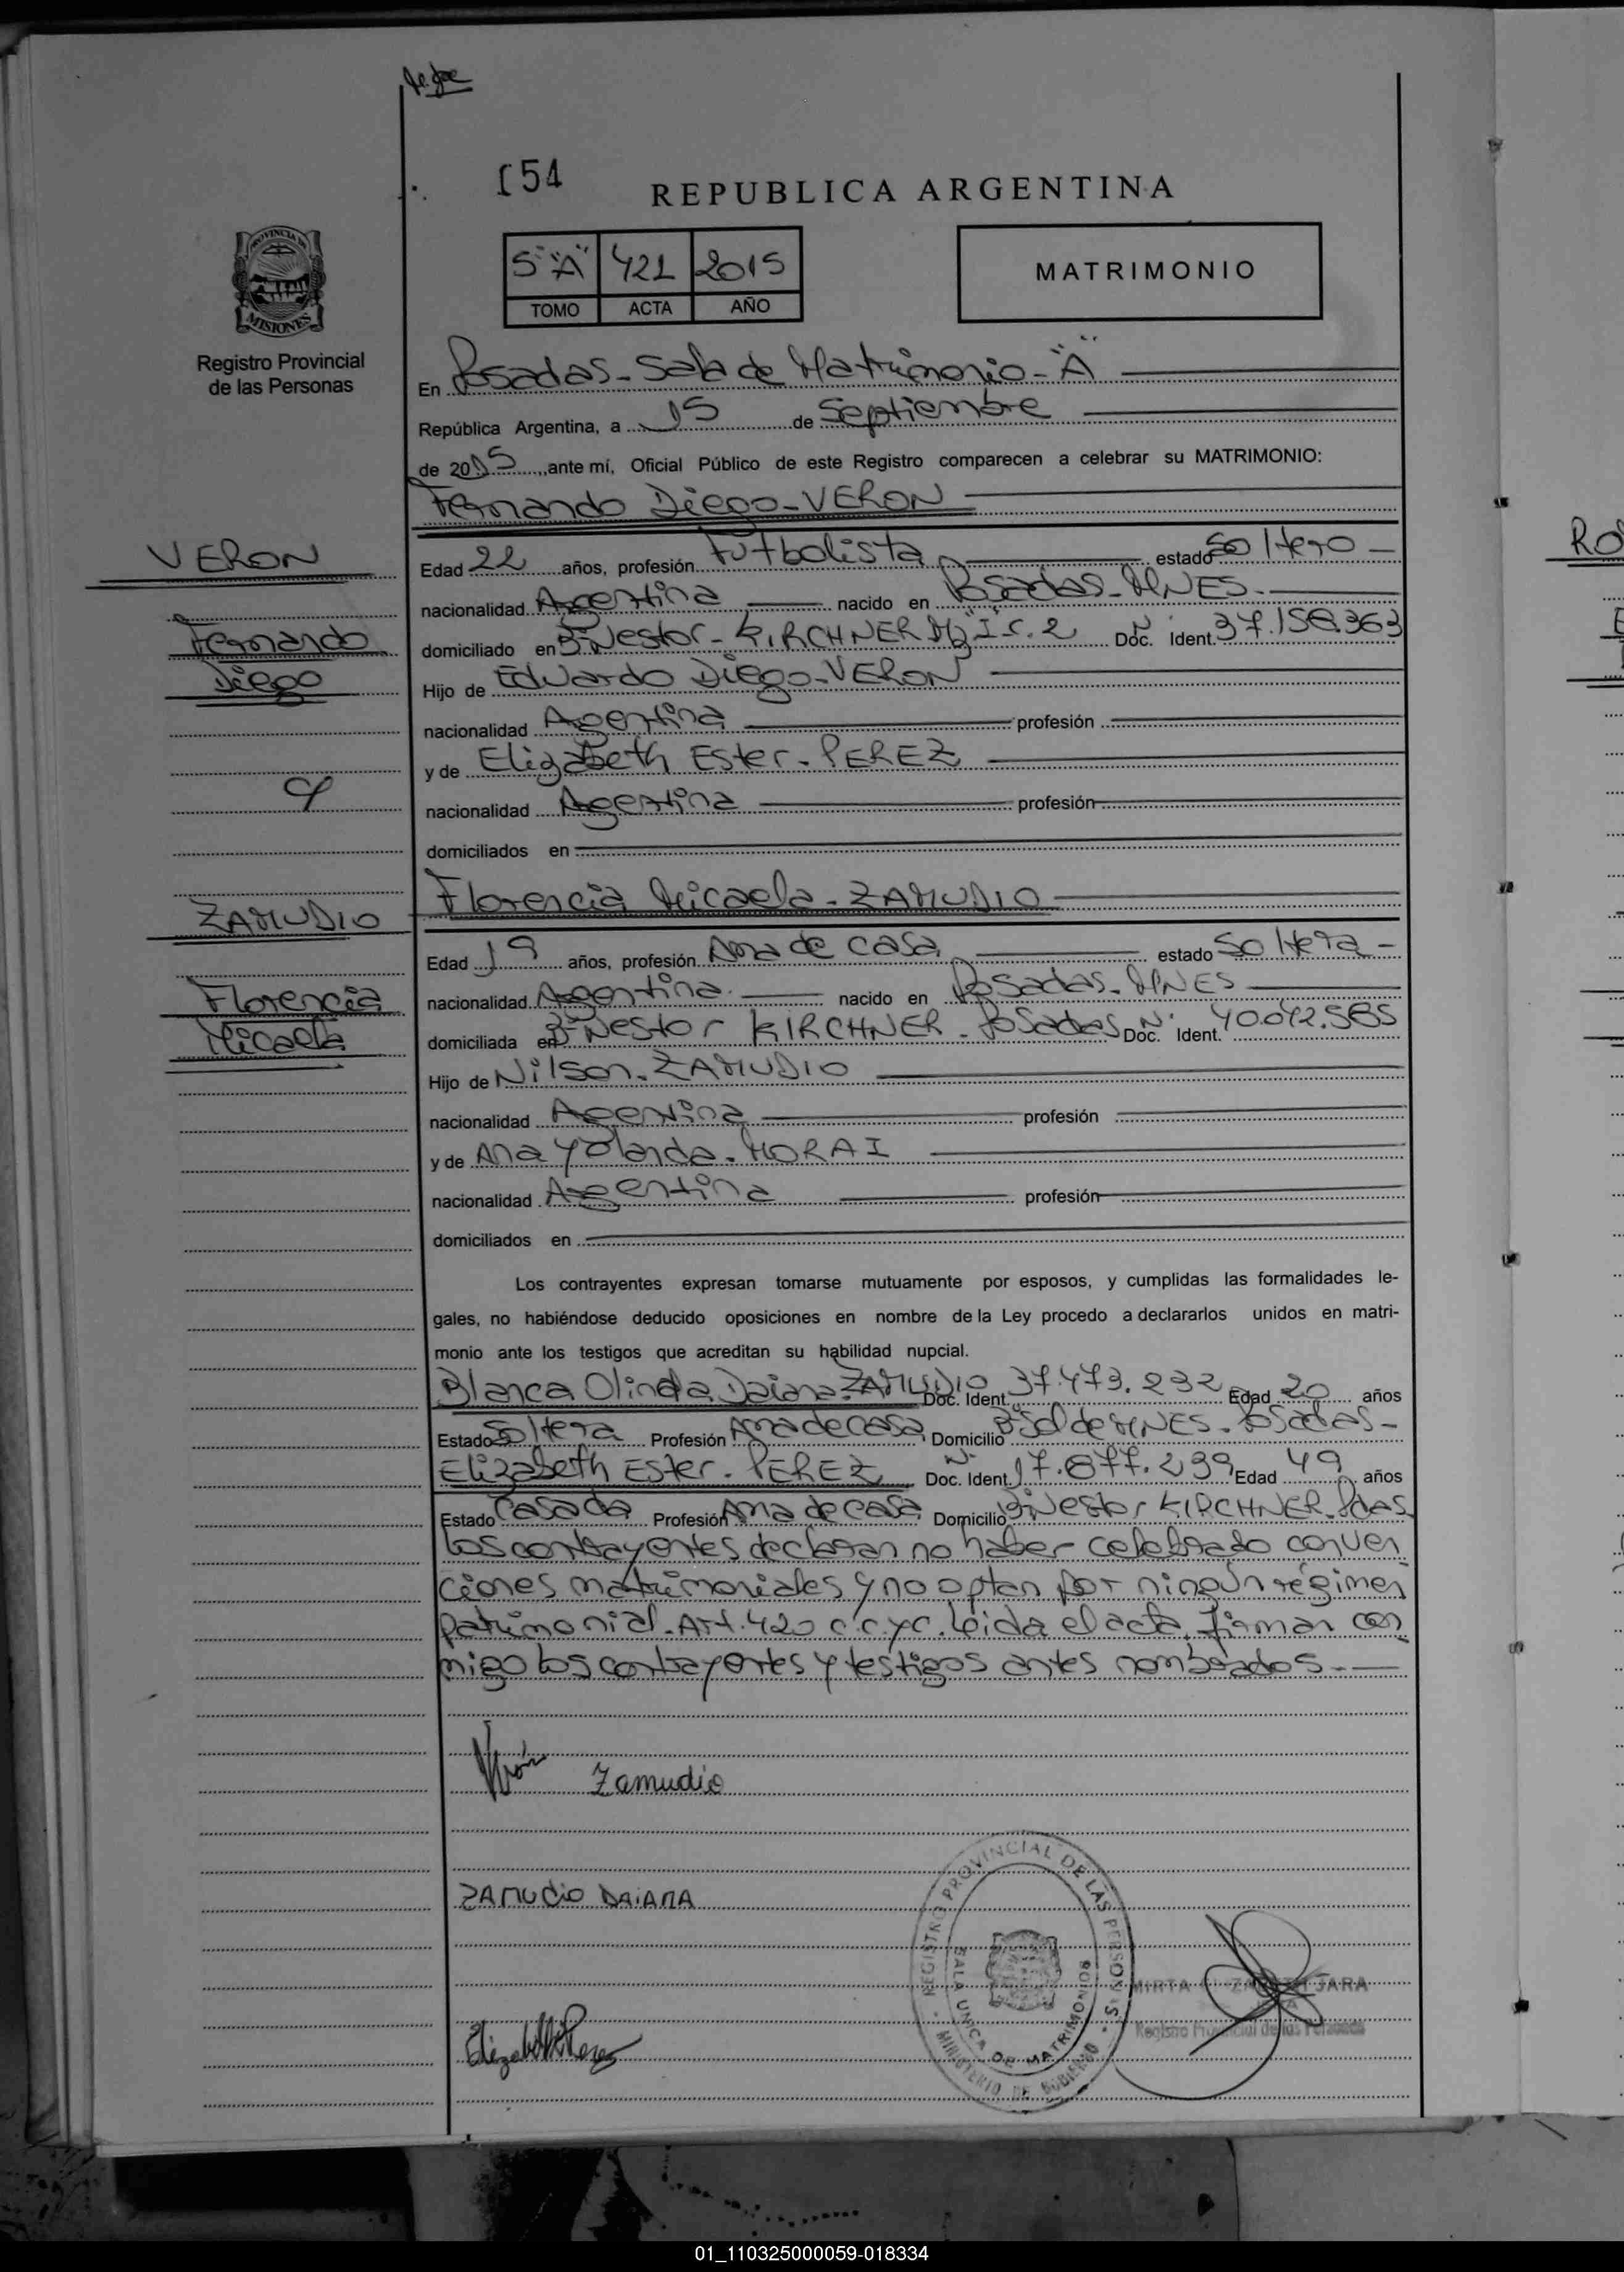 154
REPUBLICA ARGENTINA
5 "A" 421 2015
TOMO ACTA AÑO
MATRIMONIO
PROVINCIA DE
MISIONES
Registro Provincial
de las Personas
En Posadas - Sala de Matrimonio - "A"
República Argentina, a 15 de Septiembre
de 2015, ante mí, Oficial Público de este Registro comparecen a celebrar su MATRIMONIO:
Fernando Diego - VERON
VERON
Fernando
Diego
Edad 22 años, profesión Futbolista estado Soltero -
nacionalidad Argentina nacido en Posadas - MNES.
domiciliado en Bº Nestor - KIRCHNER Mz "I" c. 2 Nº Doc. Ident. 37.158.363
Hijo de Eduardo Diego - VERON
nacionalidad Argentina profesión
y de Elizabeth Ester - PEREZ
nacionalidad Argentina profesión
domiciliados en
c/
Florencia Micaela - ZAMUDIO
ZAMUDIO
Florencia
Micaela
Edad 19 años, profesión Ama de casa estado Soltera -
nacionalidad Argentina nacido en Posadas - MNES
domiciliada en Bº Nestor KIRCHNER - Posadas Nº Doc. Ident. 40.042.585
Hijo de Nilson - ZAMUDIO
nacionalidad Argentina profesión
y de Ana Yolanda - MORAI
nacionalidad Argentina profesión
domiciliados en
Los contrayentes expresan tomarse mutuamente por esposos, y cumplidas las formalidades le-
gales, no habiéndose deducido oposiciones en nombre de la Ley procedo a declararlos unidos en matri-
monio ante los testigos que acreditan su habilidad nupcial.
Blanca Olinda Daiana ZAMUDIO Doc. Ident. 37.473.232 Edad 20 años
Estado Soltera Profesión Ama de casa Domicilio Bº Sol de MNES - Posadas -
Elizabeth Ester - PEREZ Nº Doc. Ident. 17.877.239 Edad 49 años
Estado Casada Profesión Ama de casa Domicilio Bº Nestor KIRCHNER - Pdas.
Los contrayentes declaran no haber celebrado conven
ciones matrimoniales y no optan por ningún régimen
patrimonial. Art. 420 c.c.yc. Leida el acta, firman con
migo los contrayentes y testigos antes nombrados.
Verón Zamudio
ZAMUDIO DAIANA
Elizabeth Perez
REGISTRO PROVINCIAL DE LAS PERSONAS
SALA UNICA DE MATRIMONIOS
MINISTERIO DE GOBIERNO
MIRTA JARA
Registro Provincial de las Personas
RO
01_110325000059-018334